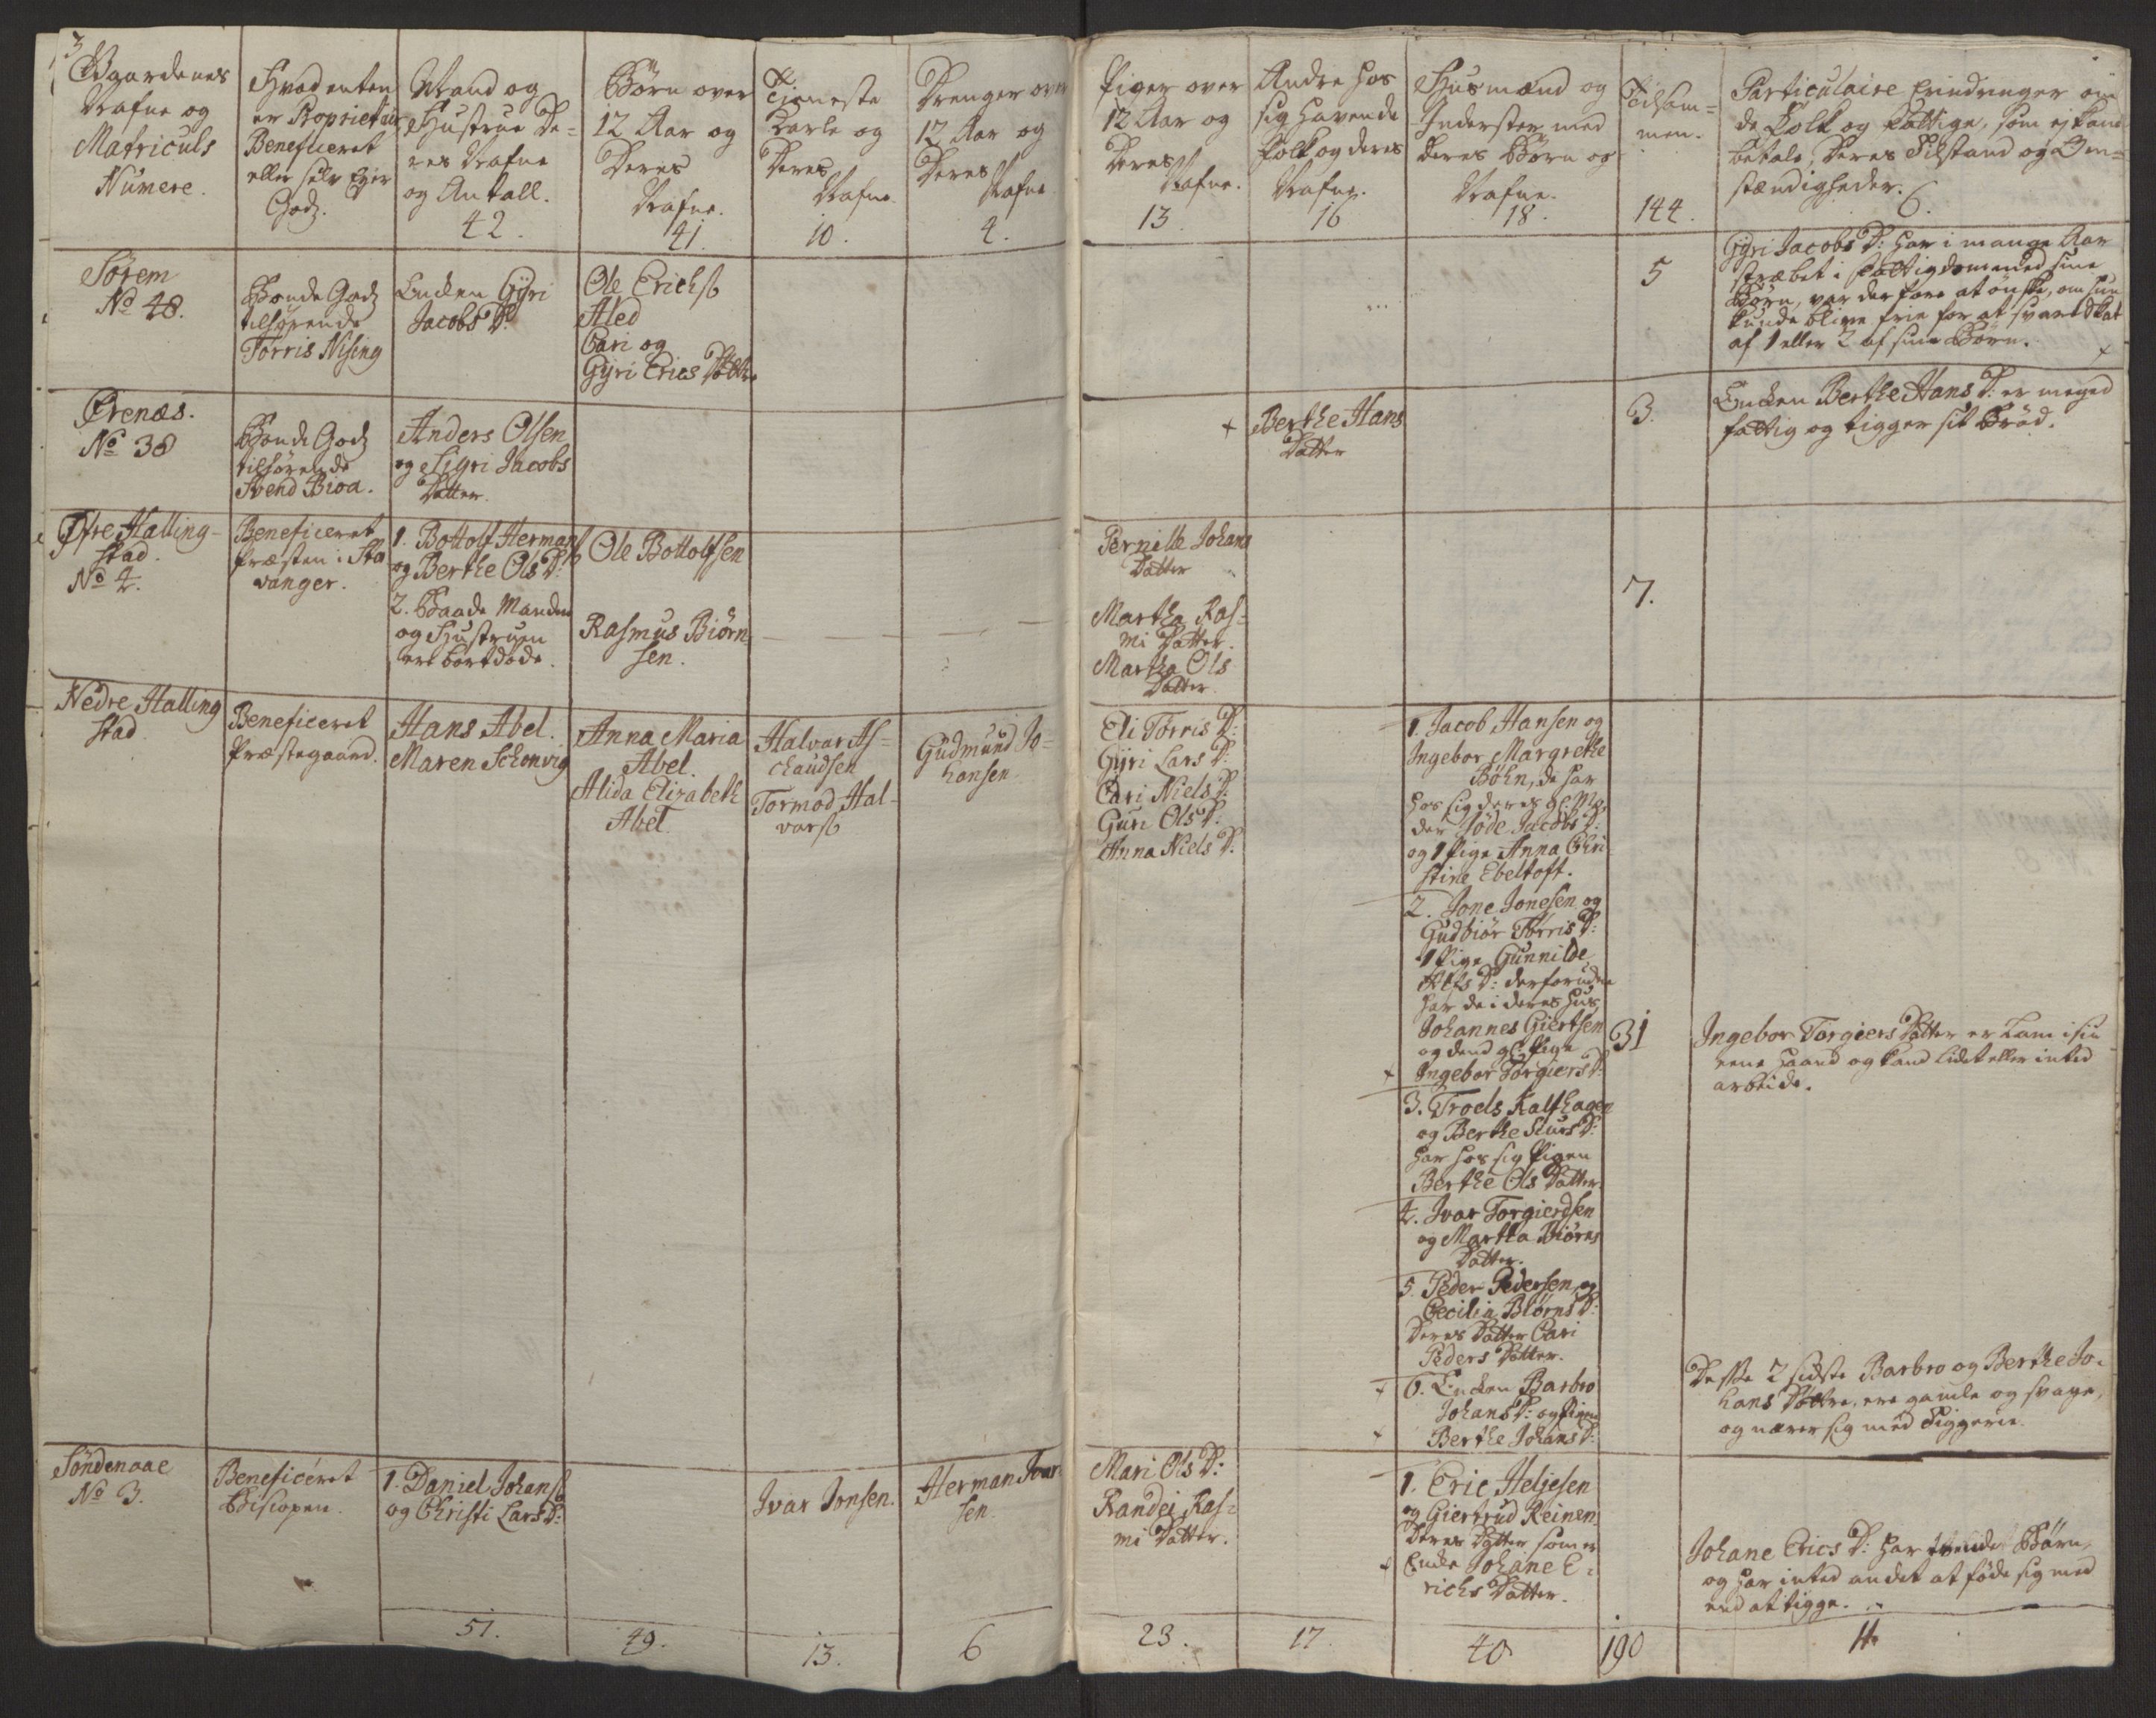 3
Gaardenes
Nafne og
Matriculs
Numere.
Hvad enten
er Proprietair
Beneficeret
eller selv Eyer
Godz.
Mand og
Hustrue De=
res Nafne
og Antall.
42.
Börn over
12 Aar og
Deres
Nafne.
41.
Tieneste
Karle og
Deres
Nafne.
10.
Drenger over
12 Aar og
Deres
Nafne.
4.
Piger over
12 Aar og
Deres
Nafne.
13
Andre hos
sig havende
Folk og deres
Nafne.
16
Husmænd og
Inderster med
deres Börn og
Nafne.
18.
Tilsam=
men.
144.
Particulaire Erindringer om
de Folk og Fattige, som ej kand
betale, Deres Tilstand og Om=
stændigheder. 6.
Sörem
No 48.
Bonde Godz
tilhörende
Törris Nising
Encken Gÿri
Jacobs D:
Ole Erichs
Aled
Cari og
Gÿri Erics Döttre
5
Gÿri Jacobs D: har i mange Aar
stræbet i Fattigdom med sine
Börn, var derfore at önske, om hun
kunde blive frie for at svare Skat
af 1 eller 2 af sine Börn.
Ørenæs.
No 38
Bonde Godz
tilhörende
Svend Bioa.
Anders Olsen
og Sigri Jacobs
Datter.
+ Berthe Hans
Datter
3.
Encken Berthe Hans D: er meged
fattig og tigger sit Bröd.
Øfre Halling-
stad.
No 4.
Beneficeret
Præsten i Sta
vanger.
1. Bottolf Hermans
og Berthe Ols D:
2. Baade Manden
og Hustruen
ere bortdöde.
Ole Bottolfsen
Rasmus Biörn
sen.
Pernille Johans
Datter
Martha Ras=
mi Datter.
Martha Ols
Datter.
7.
Nedre Halling
stad
Beneficeret
Præstegaard.
Hans Abel.
Maren Schonvig
Anna Maria
Abel.
Alida Elizabeth
Abel.
Halvar As=
chaudsen
Tormod Hal-
vars
Gudmund Jo=
hansen.
Eli Törris D:
Gÿri Lars D:
Cari Niels D:
Guri Ols D:
Anna Niels D:
1. Jacob Hansen og
Ingebor Margrethe
Böhn, de har
hos sig deres gl: Mo
der Söde Jacobs D:
og 1 Pige Anna Chri
stine Ebeltoft.
2. Jone Jonesen og
Gudbiör Törris D:
1 Pige Gunnilde
D: derforuden
har de i deres Huus
Johannes Giertsen
og dend gl: Pige
+ Ingebor Torgiers D:
3. Troels Kalfhagen
og Berthe Siurs D:
har hos sig Pigen
Berthe Ols Datter.
4. Ivar Torgierdsen
og Martha Biörns
Datter.
5. Peder Pedersen og
Cecilia Biörns D:
Deres Datter Cari
Peders Datter.
+ 6. Encken Barbro
Johans D: og Pigen
+ Berthe Johans D:
31
Ingebor Torgiers Datter er Lam i sin
eene Haand og kand lidet eller inted
arbeide.
Deße 2 sidste Barbro og Berthe Jo-
hans Döttre, ere gamle og svage,
og nærer sig med Tiggerie.
Söndenaae
No 3.
Beneficeret
Biscopen.
1. Daniel Johans
og Christi Lars D:
Ivar Jonsen.
Herman Ivar
sen.
Mari Ols D:
Randei Ras=
mi Datter.
1. Eric Heljesen
og Giertrud Reinen
Deres Datter som er
+ Encke Johane E-
richs Datter.
Johane Erics D: har tvende Börn,
og har inted andet at föde sig med
end at tigge.
51.
49.
13.
6
23.
17.
40
190
11